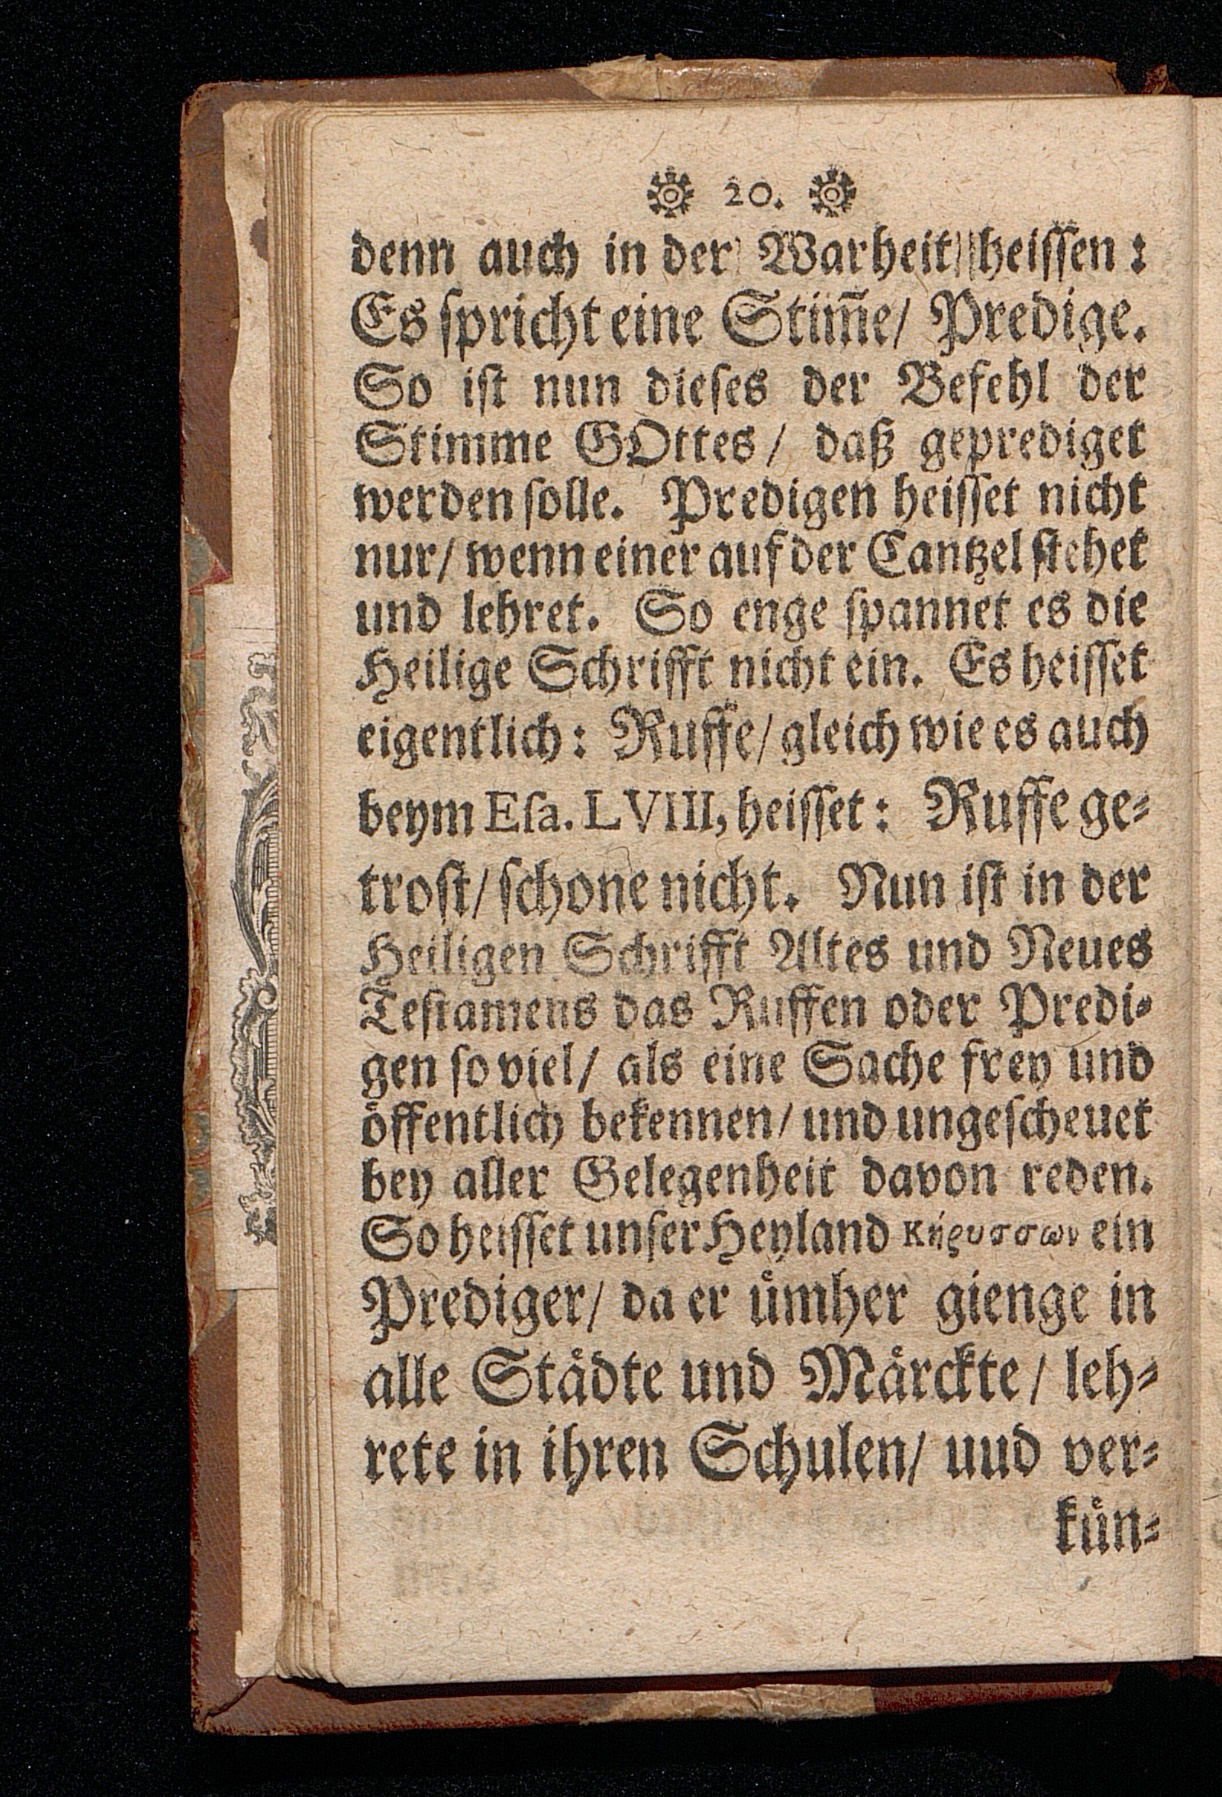 20.
denn auch in der Warheit heissen:
Es spricht eine Stim̄e/ Predige.
So ist nun dieses der Befehl der
Stimme GOttes/ daß geprediget
werden solle. Predigen heisset nicht
nur/ wenn einer auf der Cantzel stehet
und lehret. So enge spannet es die
Heilige Schrifft nicht ein. Es heisset
eigentlich: Ruffe/ gleich wie es auch
beym Esa. LVIII, heisset: Ruffe ge-
trost/ schone nicht. Nun ist in der
Heiligen Schrifft Altes und Neues
Testamens das Ruffen oder Predi-
gen so viel/ als eine Sache frey und
öffentlich bekennen/ und ungescheuet
bey aller Gelegenheit davon reden.
So heisset unser Heyland κήρυσσων ein
Prediger/ da er ümher gienge in
alle Städte und Märckte/ leh-
rete in ihren Schulen/ uud ver-
kün-